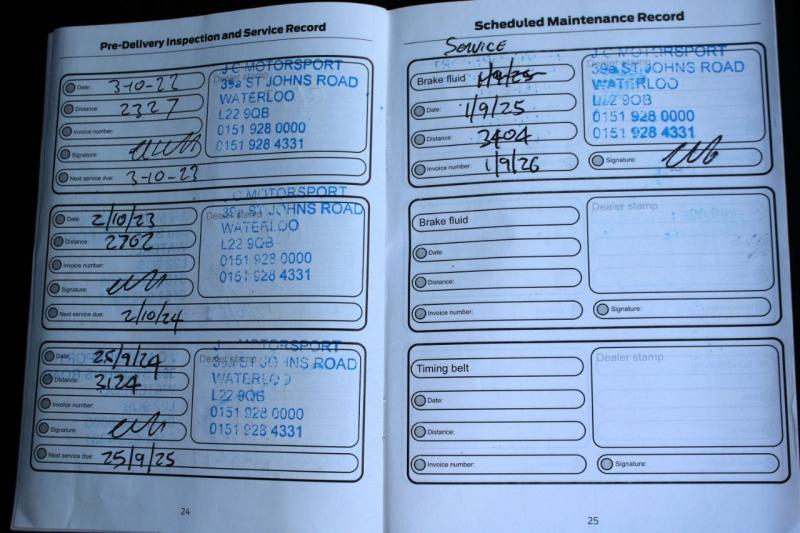 Pre-Delivery Inspection and Service Record
Date: 3-10-22
Distance: 2327
Invoice number:
Signature:
Next service due: 3-10-23
Dealer stamp
J C MOTORSPORT
39a ST JOHNS ROAD
WATERLOO
L22 9QB
0151 928 0000
0151 928 4331
Date: 2/10/23
Distance: 2762
Invoice number:
Signature:
Next service due: 2/10/24
Dealer stamp
J C MOTORSPORT
39a ST JOHNS ROAD
WATERLOO
L22 9QB
0151 928 0000
0151 928 4331
Date: 25/9/24
Distance: 3124
Invoice number:
Signature:
Next service due: 25/9/25
Dealer stamp
J C MOTORSPORT
39a ST JOHNS ROAD
WATERLOO
L22 9QB
0151 928 0000
0151 928 4331
24
Scheduled Maintenance Record
SERVICE
Brake fluid 1/9/25
Date: 1/9/25
Distance: 3404
Invoice number: 1/9/26
Dealer stamp
J C MOTORSPORT
39a ST JOHNS ROAD
WATERLOO
L22 9QB
0151 928 0000
0151 928 4331
Signature:
Brake fluid
Date:
Distance:
Invoice number:
Dealer stamp
Signature:
Timing belt
Date:
Distance:
Invoice number:
Dealer stamp
Signature:
25